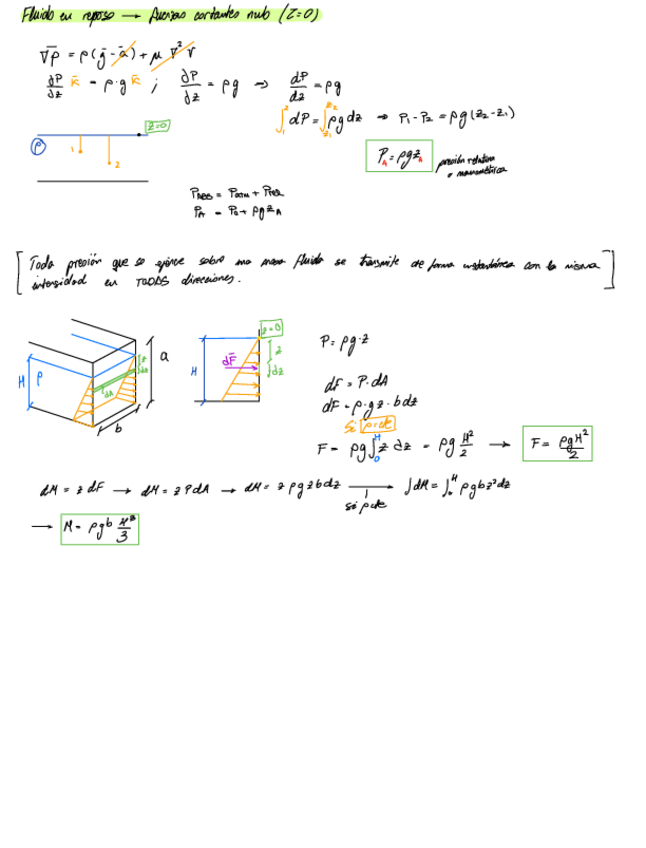 Fluido en reposo → fuerzas cortantes nulo (τ=0)
∇p̄ = ρ(ḡ - ā) + μ ∇² v̄
∂P/∂z k̄ = ρ·g k̄ ; ∂P/∂z = ρg ⇒ dP/dz = ρg
∫₁² dP = ∫_z₁^z₂ ρg dz ⇒ P₁-P₂ = ρg(z₂-z₁)
z=0
ρ
1
2
P_A = ρg z_A
presión relativa
o manométrica
P_ABS = P_atm + P_rel
P_A = P₀ + ρg z_A
[Toda presión que se ejerce sobre una masa fluido se transmite de forma instantánea con la misma
intensidad en TODAS direcciones.]
H ρ z dz dA a
b
z=0
H dF̄ z dz
P = ρg·z
dF = P·dA
dF = ρ·g z · b dz
Si ρ=cte
F = ρg ∫₀ᴴ z dz = ρg H²/2 → F = ρgH²/2
dM = z dF → dM = z P dA → dM = z ρg z b dz → ∫dM = ∫₀ᴴ ρg b z² dz
si ρ cte
→ M = ρg b H³/3